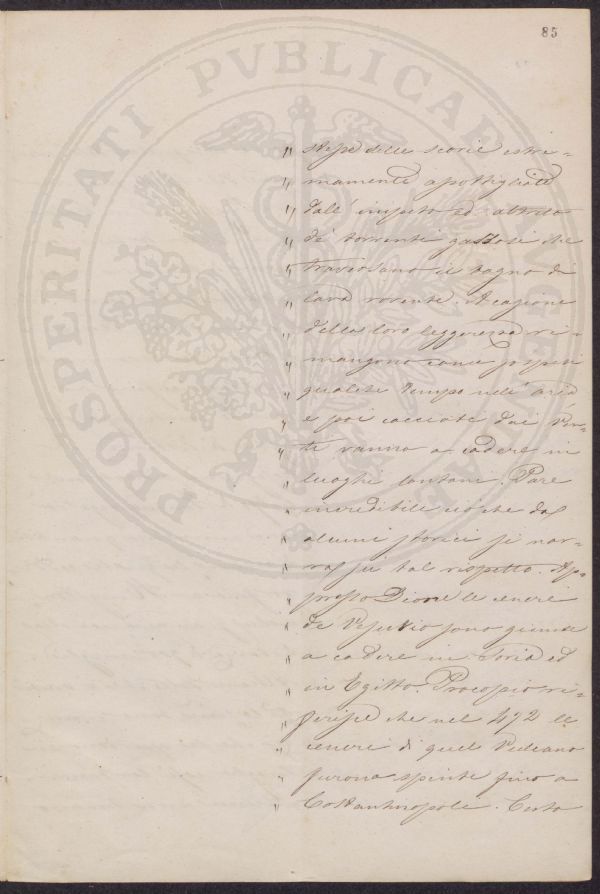 85
PROSPERITATI PVBLICAE AVGENDAE
" stesse delle scorie estre=
" mamente assottigliate
" dall' impeto ed attrito
" de' torrenti gassosi che
" traversano il bagno di
" lava rovente. A cagione
" della loro leggerezza ri=
" mangono come sospesi
" qualche tempo nell' aria
" e poi cacciate dai ven=
" ti vanno a cadere in
" luoghi lontani. Pare
" incredibile ciò che da
" alcuni storici si nar=
" ra su tal rispetto. Ap=
" presso Dione le ceneri
" de Vesuvio sono giunte
" a cadere in Soria ed
" in Egitto. Procopio ri=
" ferisce che nel 472 le
" ceneri di quel Vulcano
" furono spinte fino a
" Costantinopoli. Certo